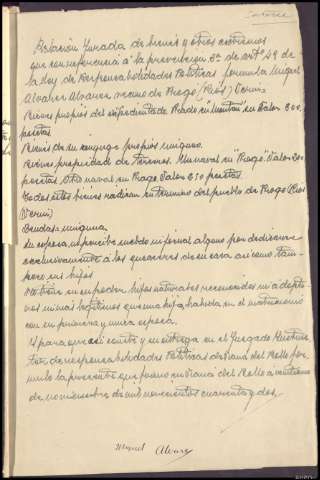 Relación Jurada de bienes y otros extremos
que con referencia á la prevención 3ª de artº 49 de
la Ley de Responsabilidades Politicas formula Miguel
Alvarez Alvarez vecino de Raego (Riós) Verin
Bienes propios del expedientado Prado en "Mentan" su valor 200
pesetas
Bienes de su conyuge propios ninguno.
Bienes propiedad de terceros. Un naval en "Raego" Valor 200
pesetas Otro naval en Raego Valor 250 pesetas.
Todos estos bienes radican en termino del pueblo de Raego (Rios
Verin)
Deudas ninguna
Su esposa, no percibe sueldo ni jornal alguno por dedicarse
exclusivamente á los quehaceres de su casa asi como tam-
poco sus hijos
No tiene en su poder hijos naturales reconocidos ni adopti-
vos ni mas legitimos que una hija habida en el matrimonio
con su primera y unica esposa.
Y para que asi conste y su entrega en el Juzgado Instruc-
tor de responsabilidades Politicas de Viana del Bollo for-
mulo la presente que firmo en Viana del Bollo a veintiuno
de noviembre de mil novecientos cuarenta y dos.
Miguel Alvarez